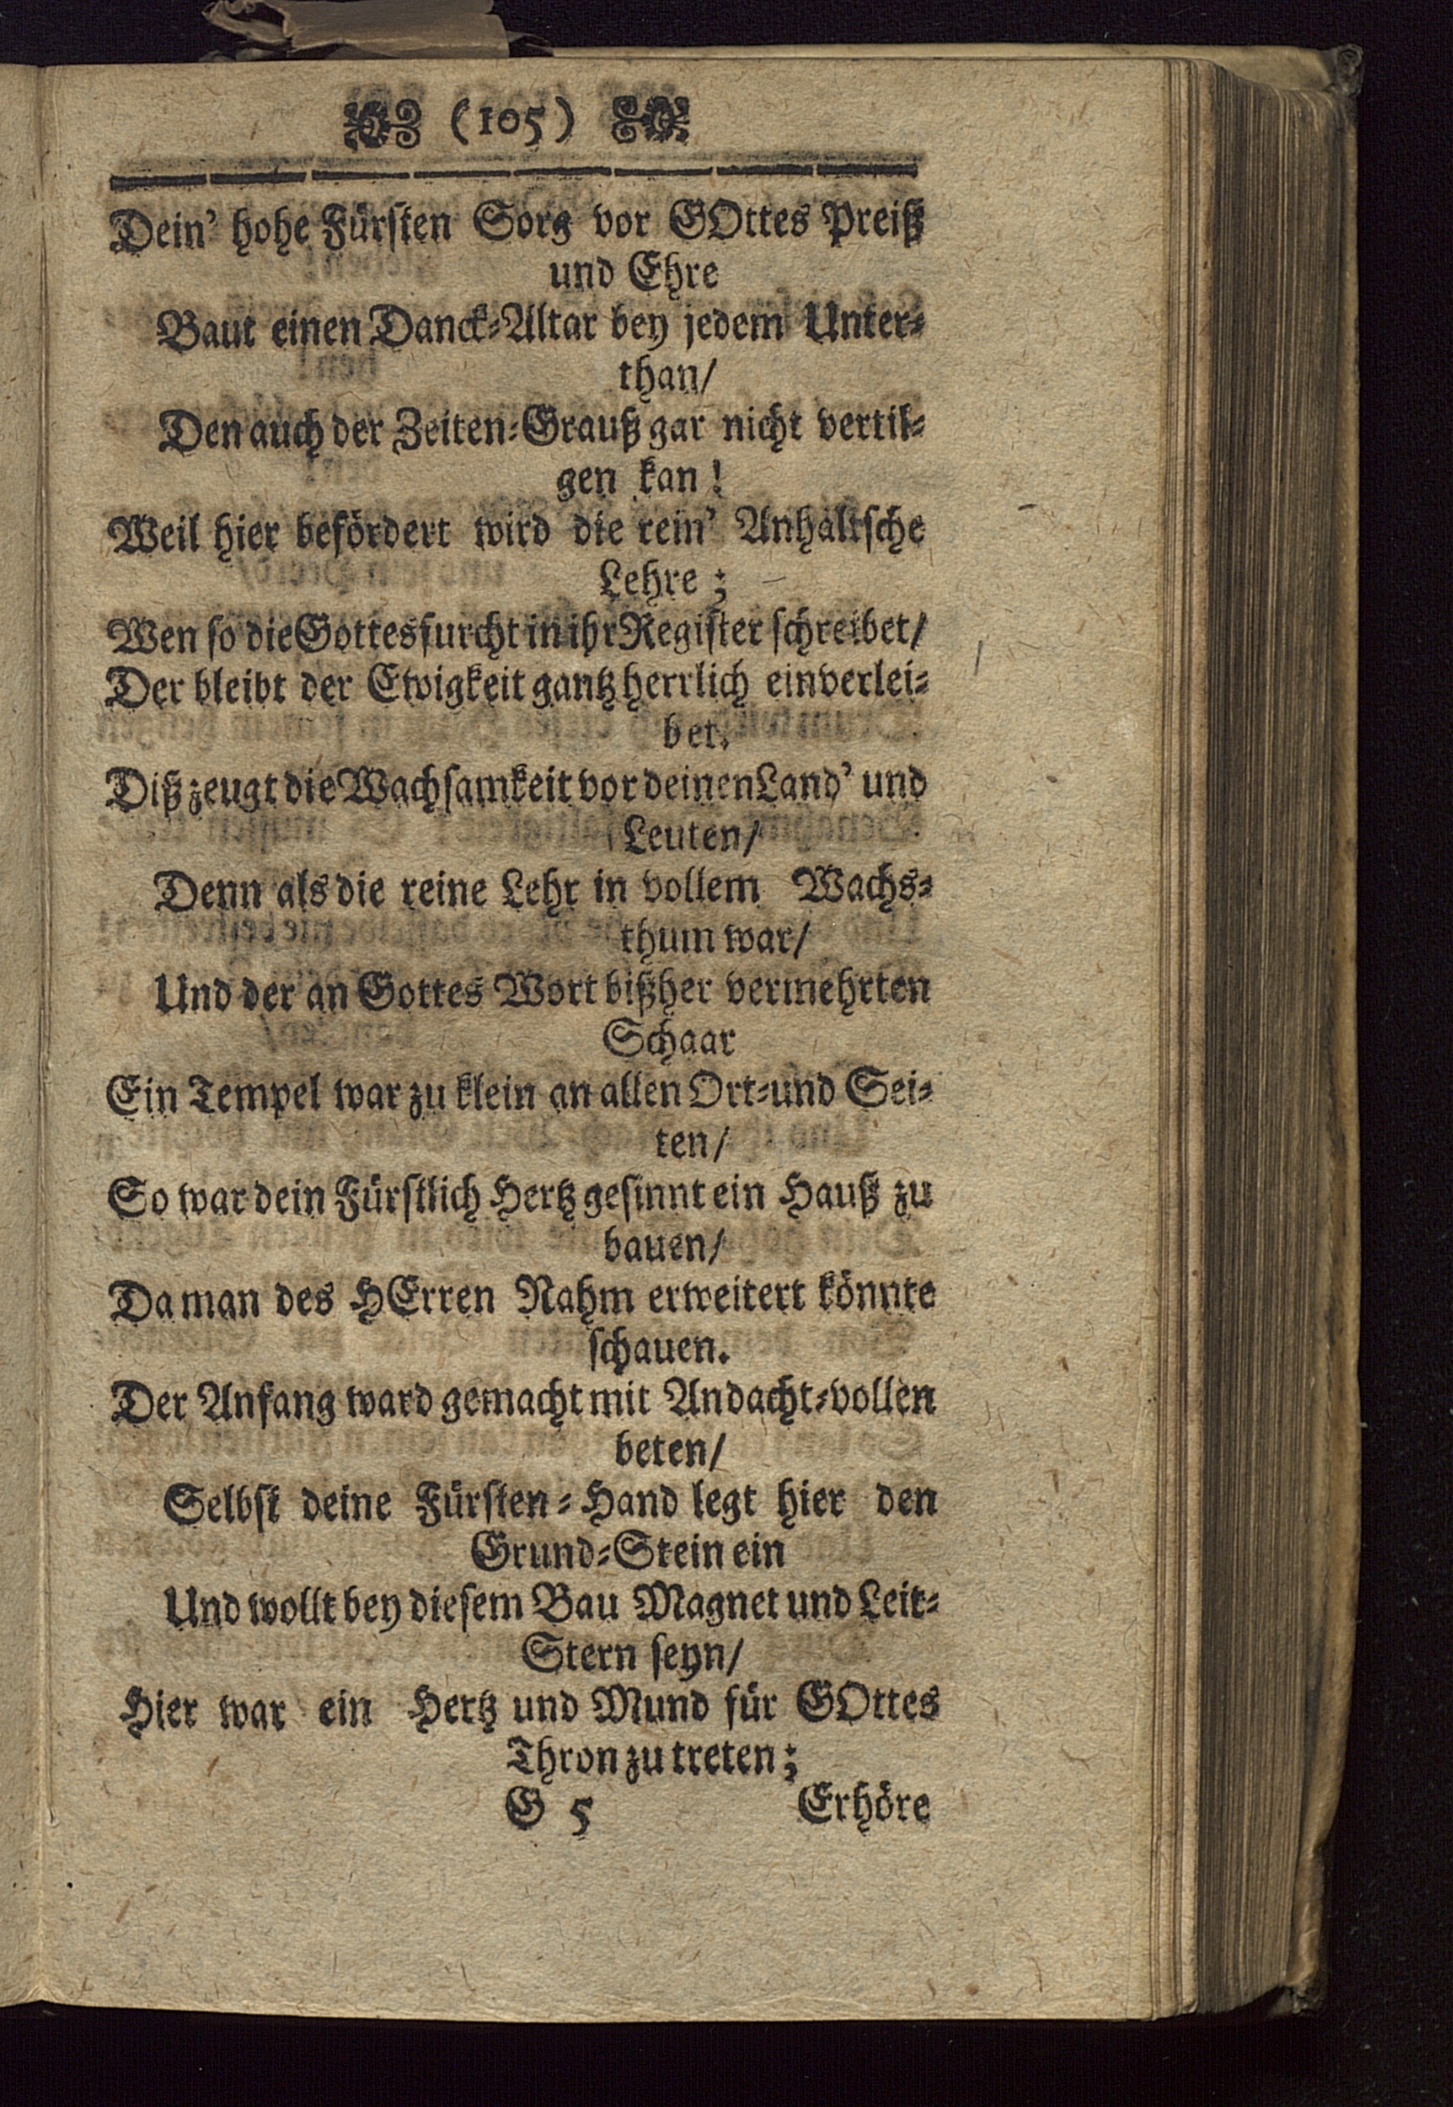 (105)
Dein' hohe Fürsten Sorg vor GOttes Preiß
und Ehre
Baut einen Danck-Altar bey jedem Unter-
than/
Den auch der Zeiten-Grauß gar nicht vertil-
gen kan!
Weil hier befördert wird die rein' Anhaltsche
Lehre;
Wen so die Gottesfurcht in ihr Register schreibet/
Der bleibt der Ewigkeit gantz herrlich einverlei-
bet.
Diß zeugt die Wachsamkeit vor deinen Land' und
Leuten/
Denn als die reine Lehr in vollem Wachs-
thum war/
Und der an Gottes Wort bißher vermehrten
Schaar
Ein Tempel war zu klein an allen Ort-und Sei-
ten/
So war dein Fürstlich Hertz gesinnt ein Hauß zu
bauen/
Da man des HErren Nahm erweitert könnte
schauen.
Der Anfang ward gemacht mit Andacht-vollen
beten/
Selbst deine Fürsten-Hand legt hier den
Grund-Stein ein
Und wollt bey diesem Bau Magnet und Leit-
Stern seyn/
Hier war ein Hertz und Mund für GOttes
Thron zu treten;
G 5 Erhöre